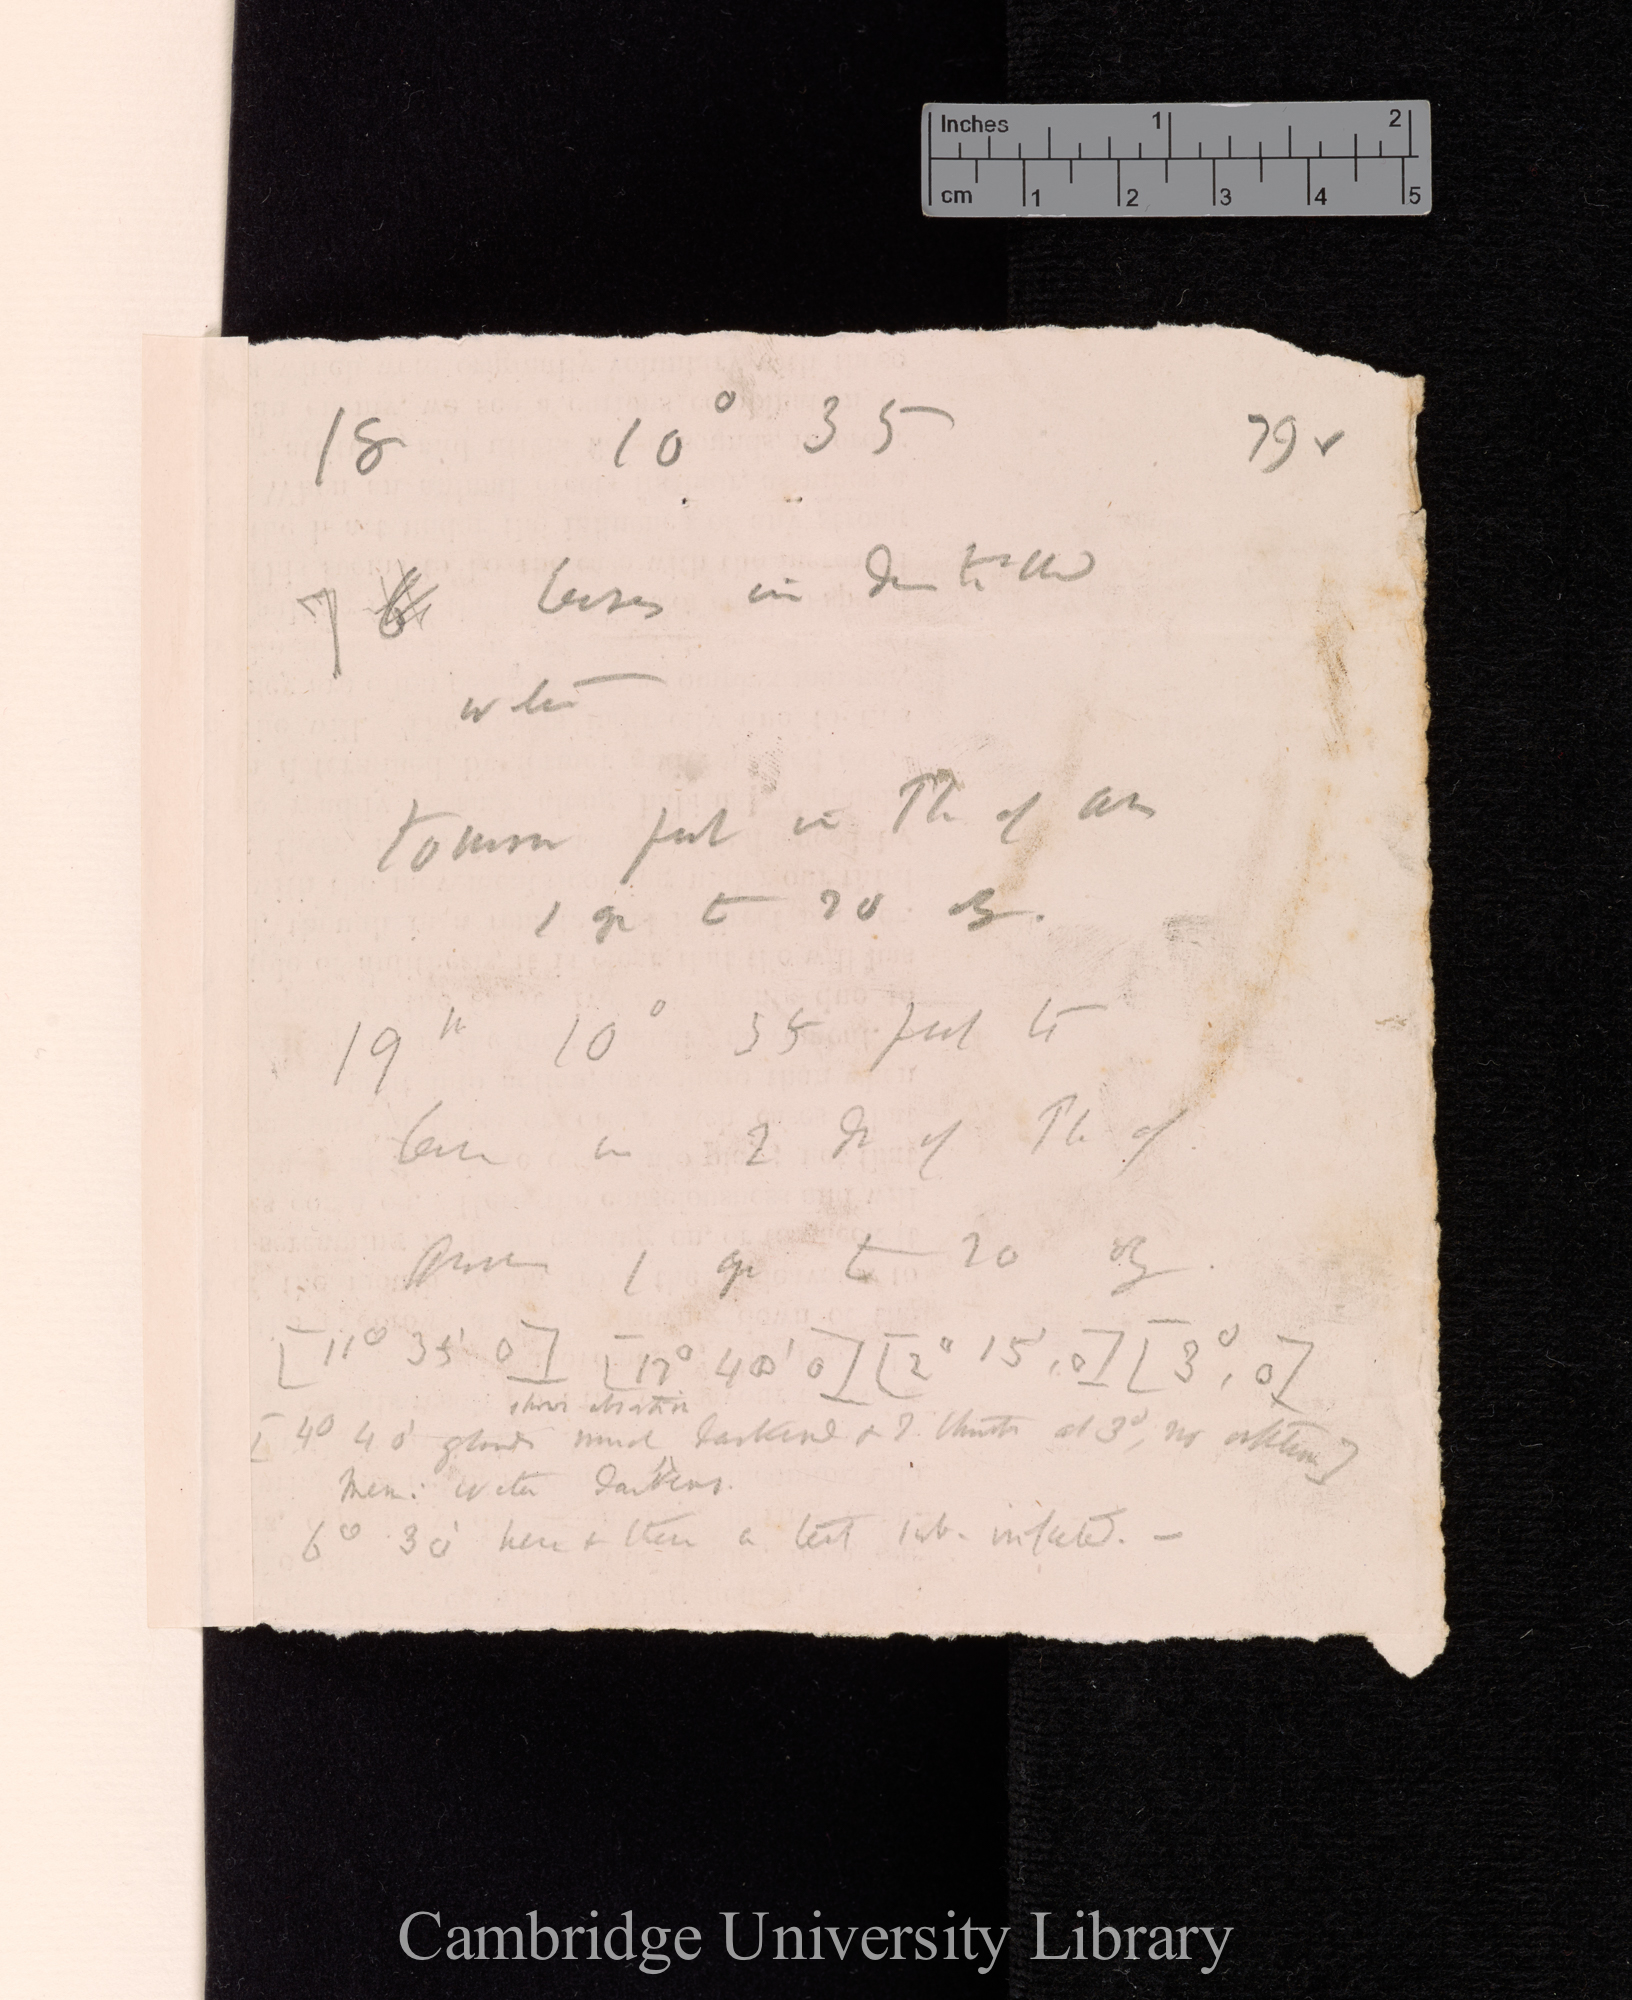 Inches 1 2
cm 1 2 3 4 5
18 10° 35 79v
7 6 leaves in distilled
water
tomorrow put in Ph of am
1 gr to 20 oz.
19th 10° 35 put 6
leaves in 2 dr of Ph of
Amm 1 gr to 20 oz.
[11° 35' 0] [12° 40' 0] [2° 15', 0] [3°, 0]
[4° 40' glands much darkened & ? at 3°, no]
Mem: water darkens.
6° 30' here & there a tent sub-inflected. —
Cambridge University Library